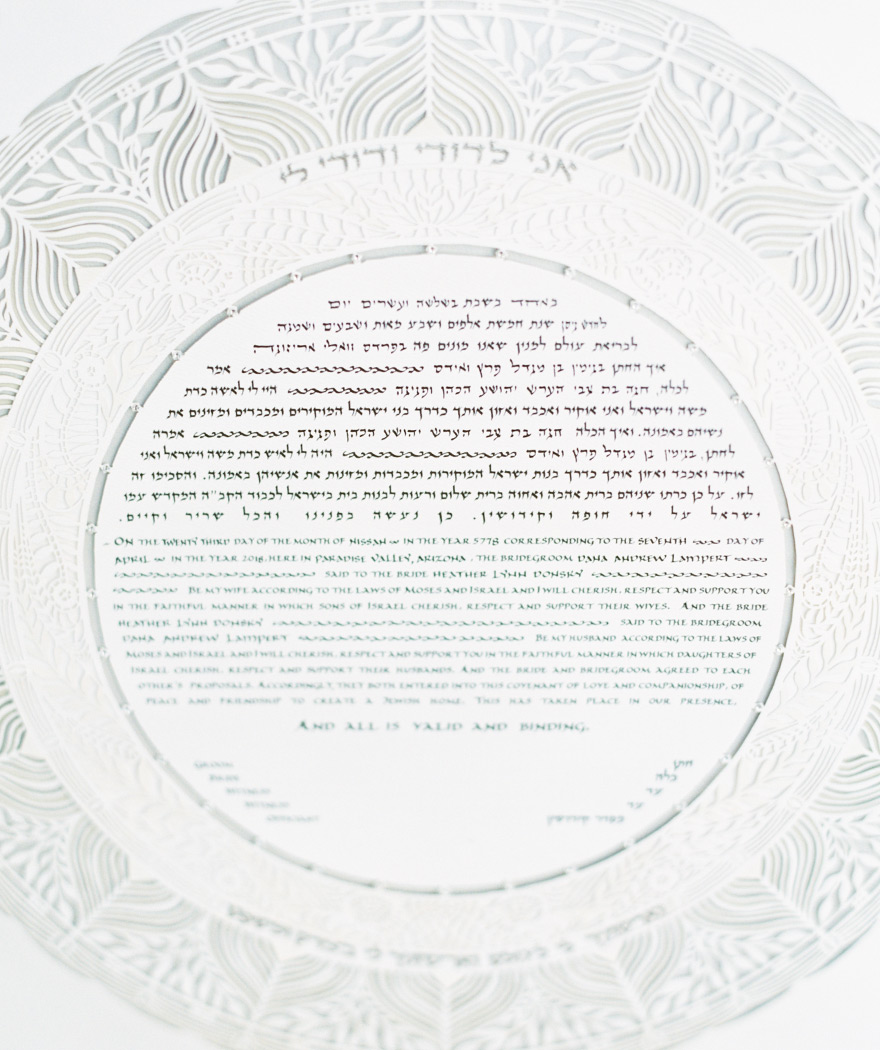 אני לדודי ודודי לי
באחד בשבת בשלשה ועשרים יום
לחדש ניסן שנת חמשת אלפים ושבע מאות ושבעים ושמנה
לבריאת עולם למנין שאנו מונים פה בפרדס וואלי אריזונה
איך החתן בנימין בן מגדל פרץ ואידס אמר
לכלה, חנה בת צבי הערש יהושע הכהן ופניגה היי לי לאשה כדת
משה וישראל ואני אוקיר ואכבד ואזון אותך כדרך בני ישראל המוקירים ומכבדים ומזינים את
נשיהם באמונה. ואיך הכלה חנה בת צבי הערש יהושע הכהן ופניגה אמרה
לחתן, בנימין בן מגדל פרץ ואידס היה לי לאיש כדת משה וישראל ואני
אוקיר ואכבד ואזון אותך כדרך בנות ישראל המוקירות ומכבדות ומזינות את אנשיהן באמונה. והסכימו זה
לזו. על כן כרתו שניהם ברית אהבה ואחוה ברית שלום ורעות לבנות בית בישראל לכבוד הקב"ה המקדש עמו
ישראל על ידי חופה וקידושין. כן נעשה בפנינו והכל שריר וקיים.
On the twenty third day of the month of Nissan in the year 5778 corresponding to the seventh day of
April in the year 2018, here in Paradise Valley, Arizona, the bridegroom Dana Andrew Lampert
said to the bride Heather Lynn Donsky
Be my wife according to the laws of Moses and Israel and I will cherish, respect and support you
in the faithful manner in which sons of Israel cherish, respect and support their wives. And the bride
Heather Lynn Donsky said to the bridegroom
Dana Andrew Lampert Be my husband according to the laws of
Moses and Israel and I will cherish, respect and support you in the faithful manner in which daughters of
Israel cherish, respect and support their husbands. And the bride and bridegroom agreed to each
other's proposals. Accordingly, they both entered into this covenant of love and companionship, of
peace and friendship to create a Jewish home. This has taken place in our presence,
And all is valid and binding.
Groom חתן
Bride כלה
Witness עד
Witness עד
Officiant מסדר קידושין